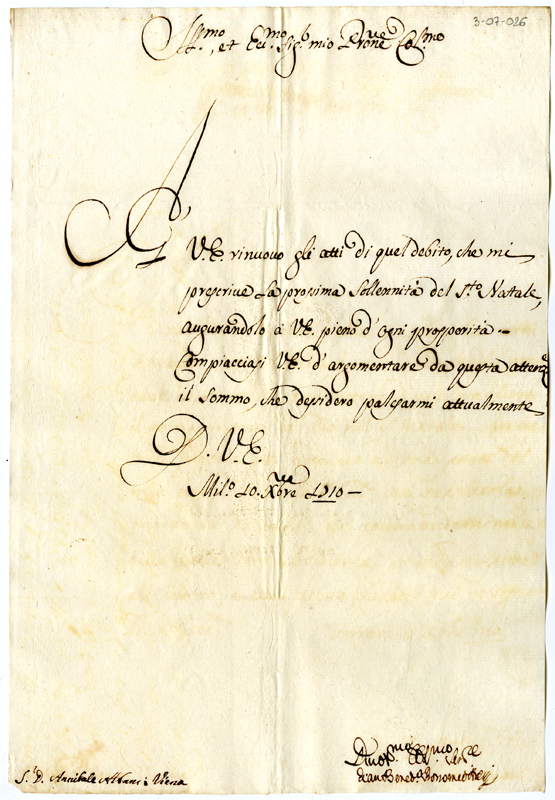 3-07-026
Ill.mo, et Ecc.mo Sig.r mio Prone Col.mo
A V.E. rinuovo gli atti di quel debito, che mi
prescrive la prossima Sollennità del S.to Natale,
augurandolo à V.E. pieno d'ogni prosperità -
Compiacciasi V.E. d'argomentare da questa attenz.e
il Sommo, che dessidero palesarmi attualmente
D. V.E.
Mil.o 10. Xbre 1710 -
S.r D. Annibale Albani : Viena